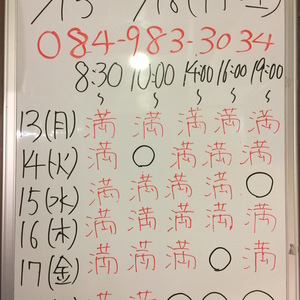 084-983-3034
8:30 10:00 14:00 16:00 19:00
〜 〜 〜 〜 〜
13(月) 満 満 満 満 満
14(火) 満 ○ 満 満 満
15(水) 満 満 満 満 ○
16(木) 満 満 満 満 満
17(金) 満 満 満 ○ 満